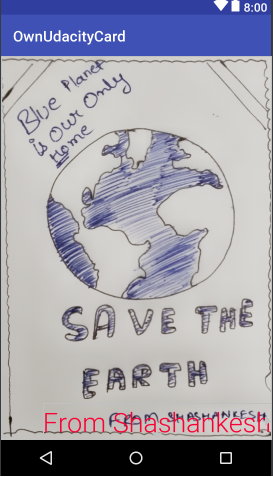 8:00
OwnUdacityCard
Blue Planet
is Our Only
Home
SAVE THE
EARTH
FROM SHASHANKESH
From Shashankesh